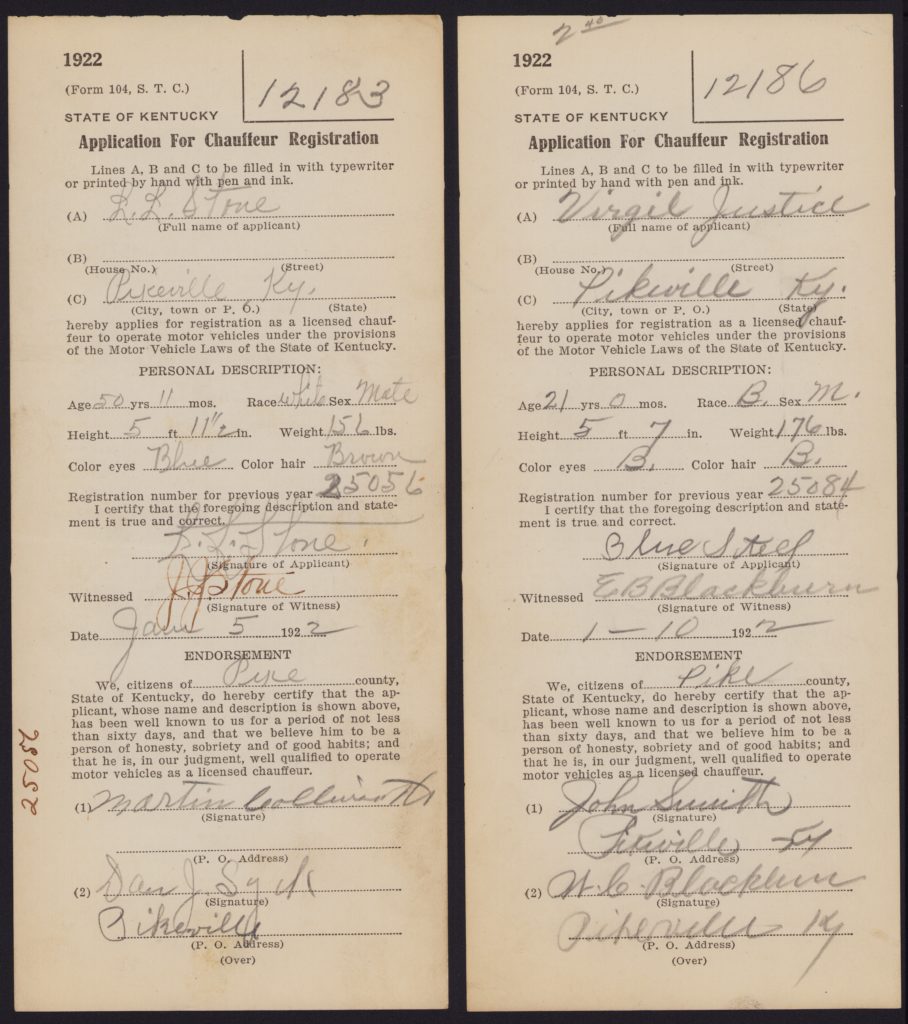 1922
(Form 104, S. T. C.)
12183
STATE OF KENTUCKY
Application For Chauffeur Registration
Lines A, B and C to be filled in with typewriter
or printed by hand with pen and ink.
(A) L. L. Stone
(Full name of applicant)
(B)
(House No.) (Street)
(C) Pikeville Ky.
(City, town or P. O.) (State)
hereby applies for registration as a licensed chauf-
feur to operate motor vehicles under the provisions
of the Motor Vehicle Laws of the State of Kentucky.
PERSONAL DESCRIPTION:
Age 50 yrs 11 mos. Race white Sex Male
Height 5 ft 11 1/2 in. Weight 156 lbs.
Color eyes Blue Color hair Brown
Registration number for previous year 25056
I certify that the foregoing description and state-
ment is true and correct.
L. L. Stone.
(Signature of Applicant)
Witnessed Stone
(Signature of Witness)
Date Jan 5 1922
ENDORSEMENT
We, citizens of Pike county,
State of Kentucky, do hereby certify that the ap-
plicant, whose name and description is shown above,
has been well known to us for a period of not less
than sixty days, and that we believe him to be a
person of honesty, sobriety and of good habits; and
that he is, in our judgment, well qualified to operate
motor vehicles as a licensed chauffeur.
(1) Martin
(Signature)
(P. O. Address)
(2) Dan J.
(Signature)
Pikeville
(P. O. Address)
(Over)
25056
2 40
1922
(Form 104, S. T. C.)
12186
STATE OF KENTUCKY
Application For Chauffeur Registration
Lines A, B and C to be filled in with typewriter
or printed by hand with pen and ink.
(A) Virgil Justice
(Full name of applicant)
(B)
(House No.) (Street)
(C) Pikeville Ky.
(City, town or P. O.) (State)
hereby applies for registration as a licensed chauf-
feur to operate motor vehicles under the provisions
of the Motor Vehicle Laws of the State of Kentucky.
PERSONAL DESCRIPTION:
Age 21 yrs 0 mos. Race B. Sex M.
Height 5 ft 7 in. Weight 176 lbs.
Color eyes B. Color hair B.
Registration number for previous year 25084
I certify that the foregoing description and state-
ment is true and correct.
Blue Steel
(Signature of Applicant)
Witnessed E B Blackburn
(Signature of Witness)
Date 1-10 1922
ENDORSEMENT
We, citizens of Pike county,
State of Kentucky, do hereby certify that the ap-
plicant, whose name and description is shown above,
has been well known to us for a period of not less
than sixty days, and that we believe him to be a
person of honesty, sobriety and of good habits; and
that he is, in our judgment, well qualified to operate
motor vehicles as a licensed chauffeur.
(1) John Smith
(Signature)
Pikeville Ky
(P. O. Address)
(2)
(Signature)
Pikeville Ky
(P. O. Address)
(Over)